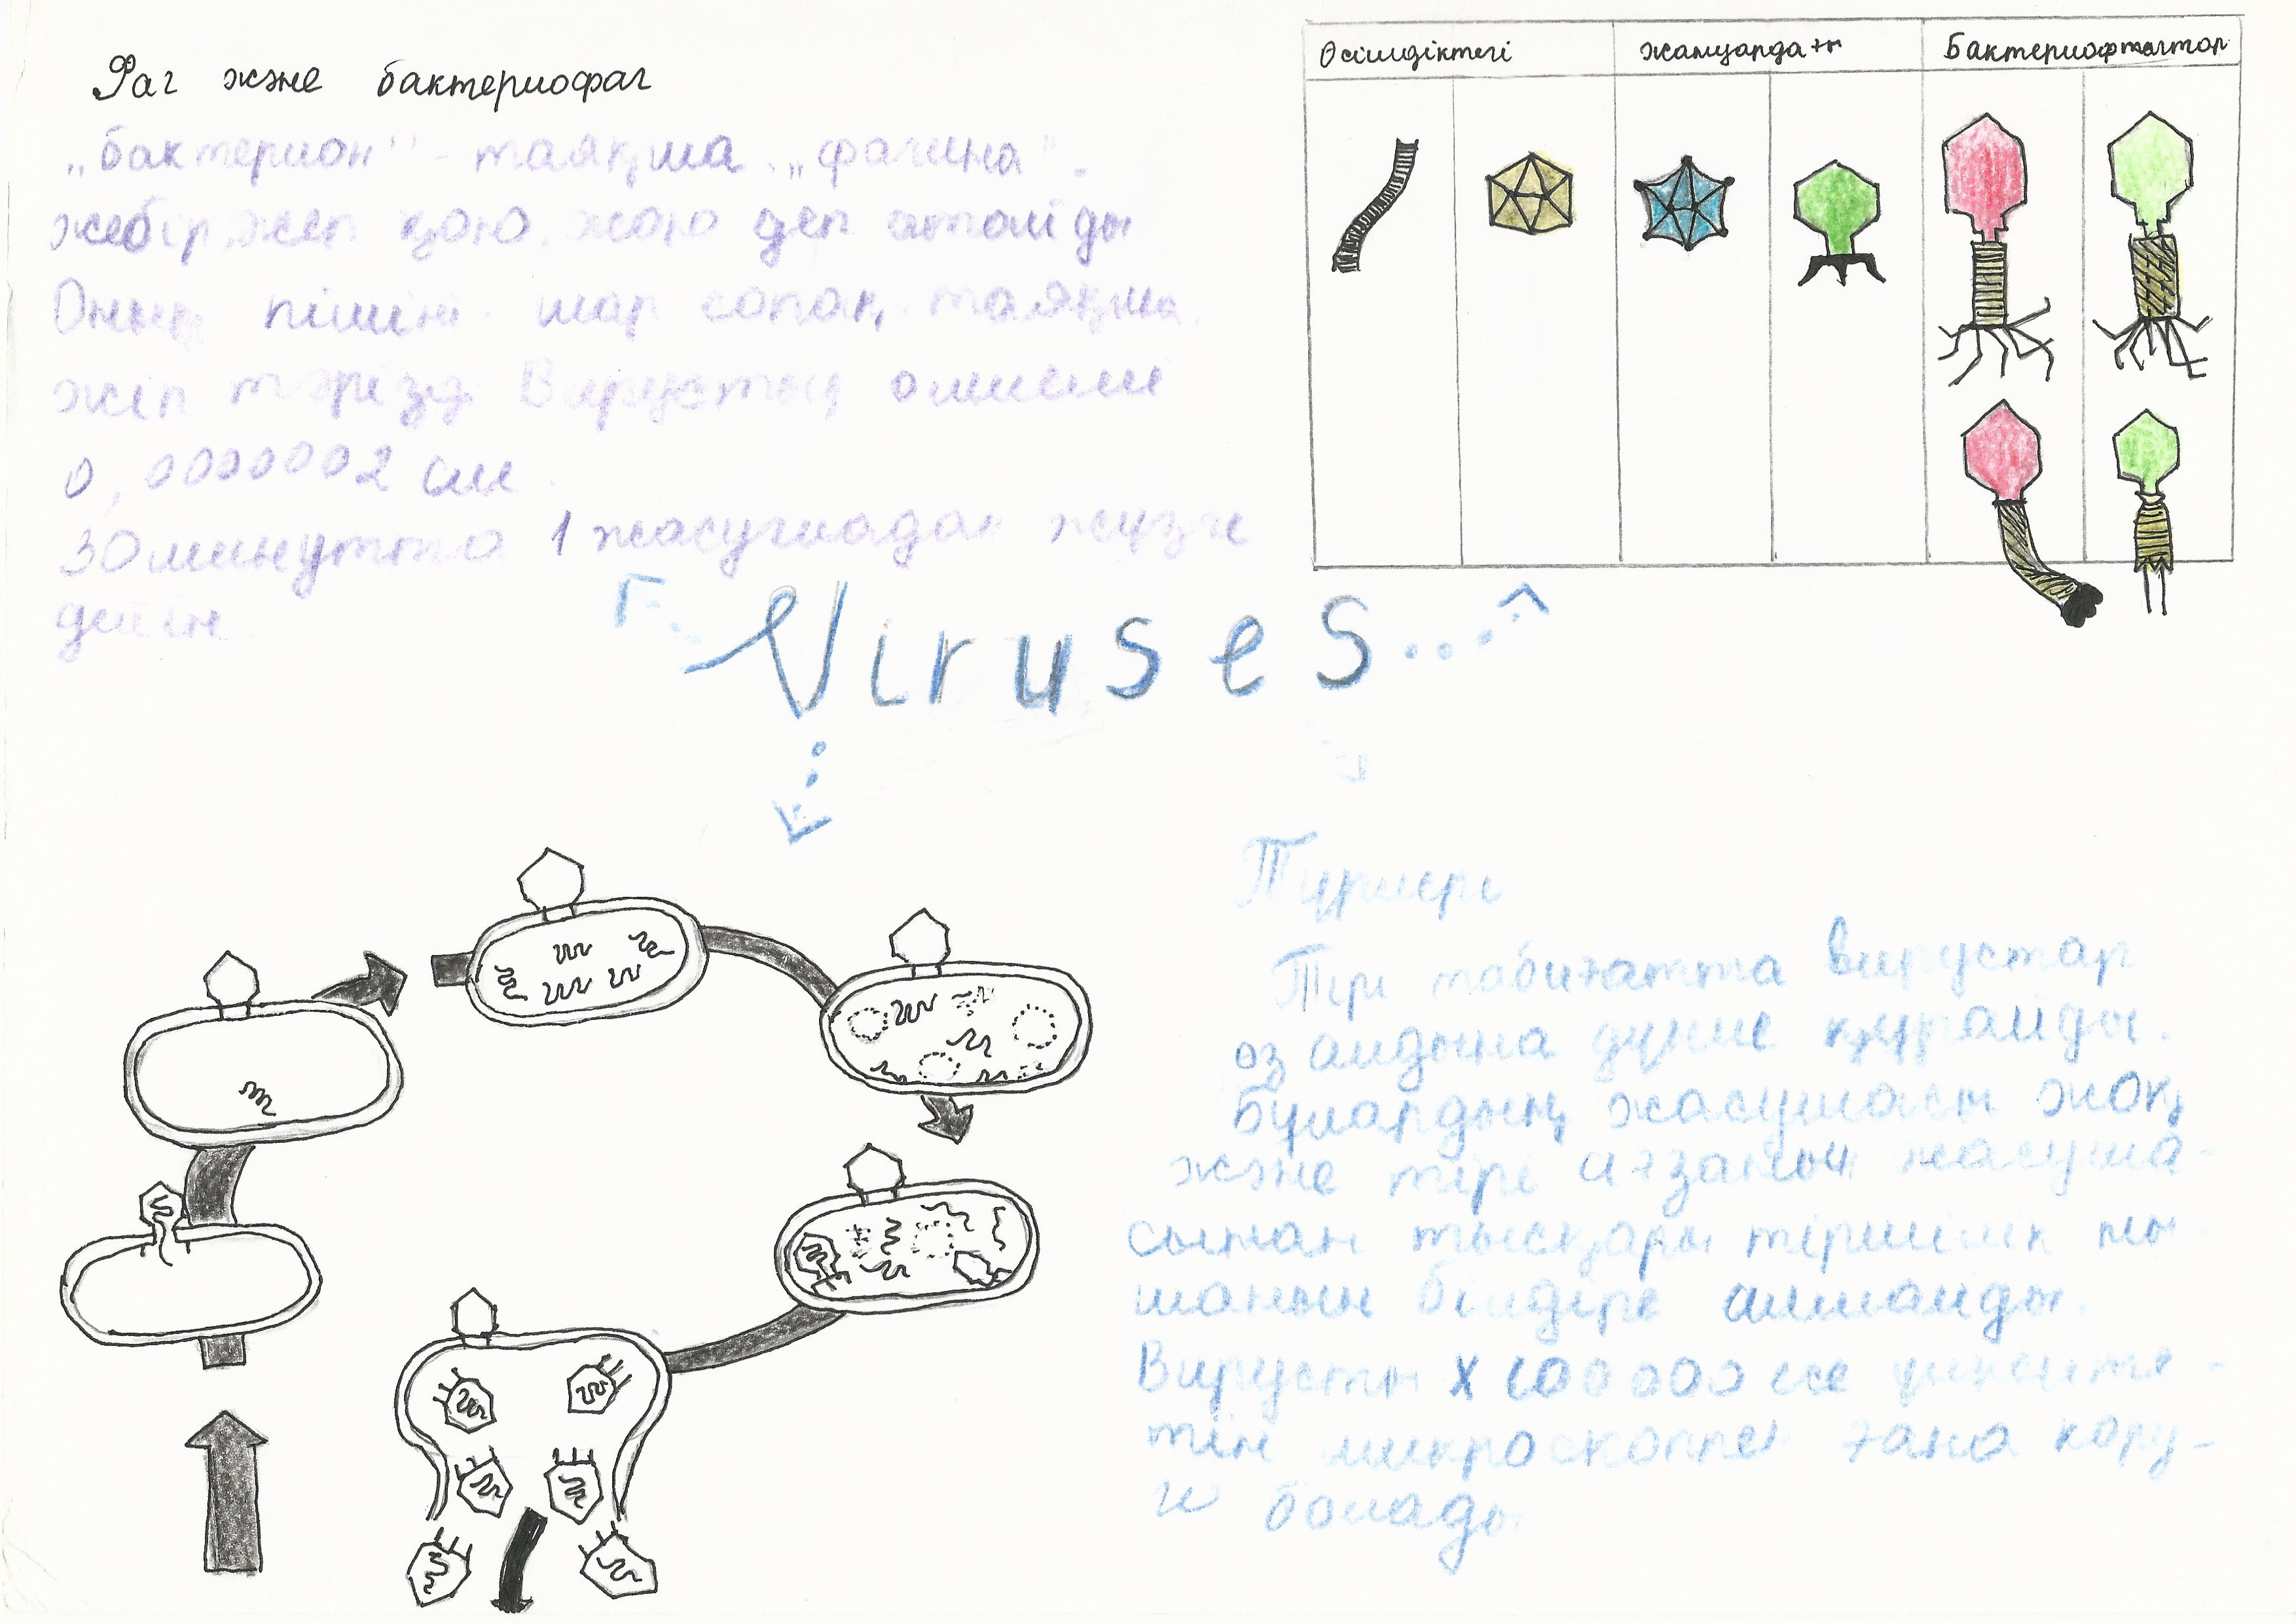 Фаг және бактериофаг
„бактерион" - таяқша. „фагина".
жебір, жеп қою, жою деп атайды
Оның пішіні шар сопақ, таяқша.
жіп тәрізд Вирустың өлшемі
0,0000002 см.
30 минутта 1 жасушадан жүзге
дейін
Өсімдіктегі жануардағы Бактериофагтар
Viruses...
Түрлері
Тірі табиғатта вирустар
өз алдына дүние құрайды.
Бұлардың жасушасы жоқ,
және тірі ағзаның жасуша-
сынан тысқары тіршілік ны
шанын білдіре алмайды.
Вирусты х 100 000 есе үлкейте-
тін микроскоппен ғана көру-
ге болады